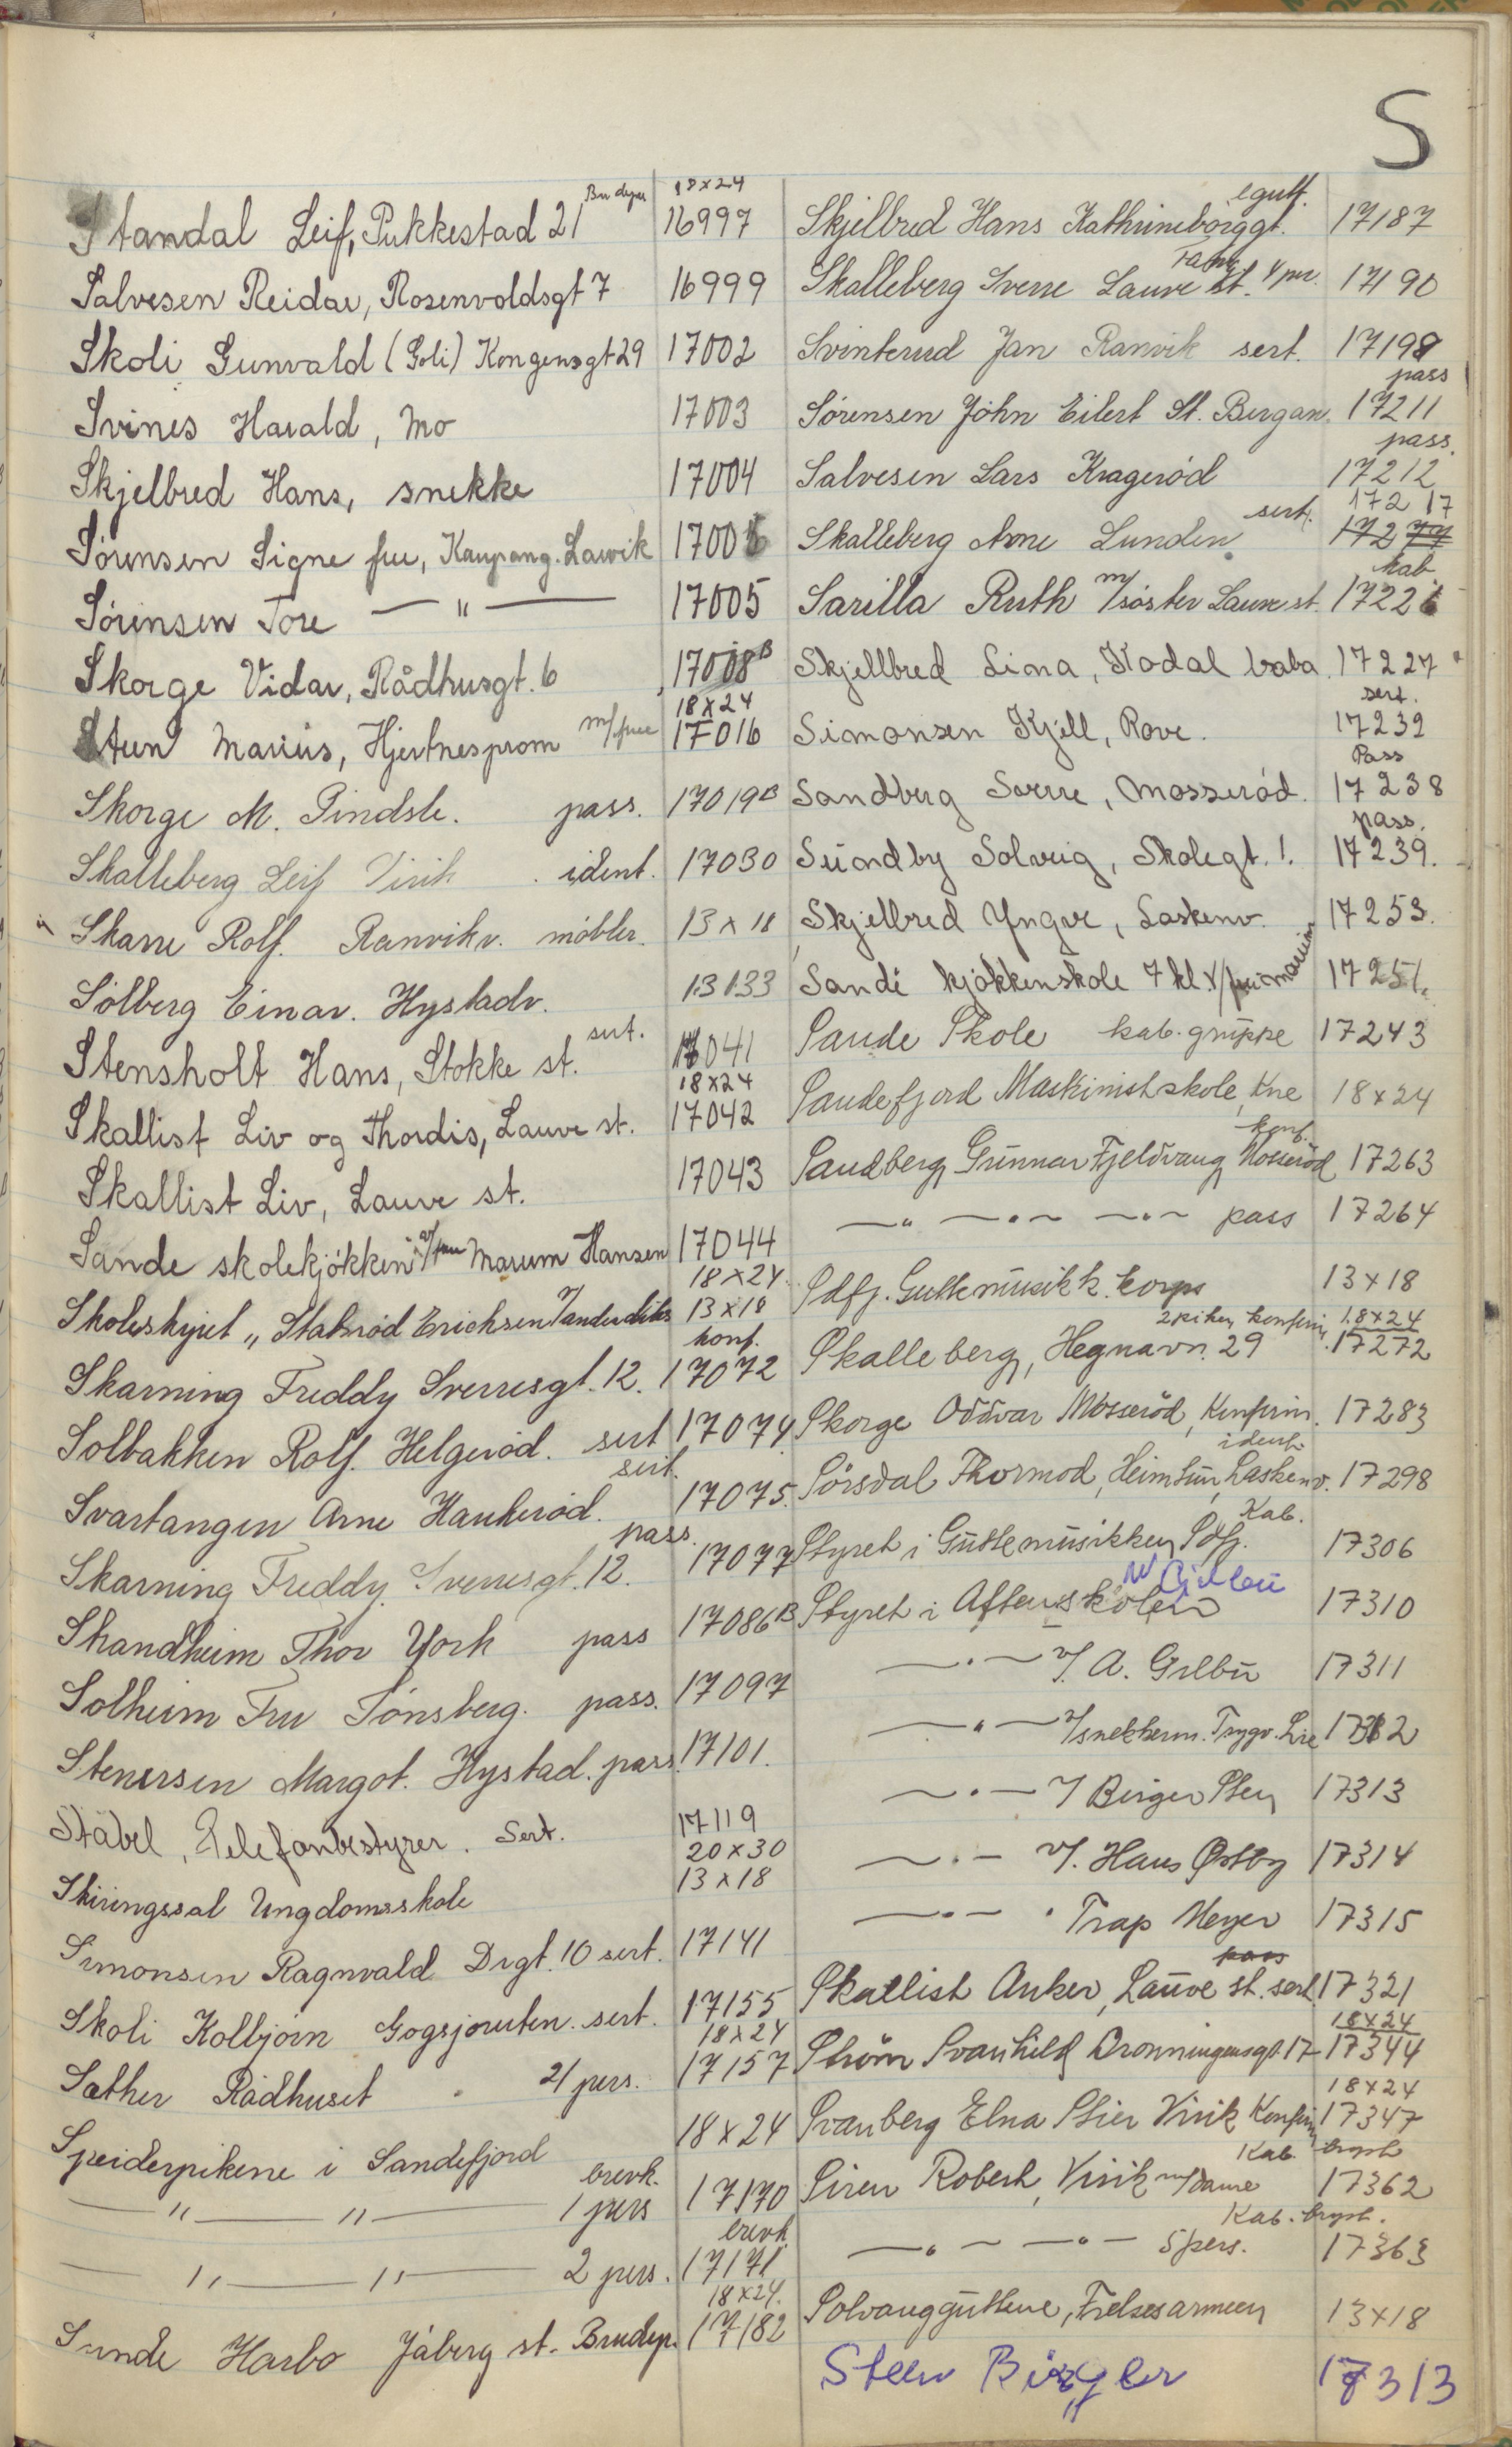 S
Standal Leif, Pukkestad 21 Brudepar 18x24 16997
Salvesen Reidar, Rosenvoldsgt 7 16999
Skoli Gunvald (Goli) Kongensgt 29 17002
Svines Harald, Mo 17003
Skjelbred Hans, snekke 17004
Sørensen Signe frue, Kaupang. Larvik 17006
Sørensen Tore — " — 17005
Skorge Vidar, Rådhusgt. 6 17008B
Steen Marius, Hjertnesprom m/frue 18x24 17016
Skorge M. Pindsle. pass. 17019B
Skalleberg Leif Virik . ident. 17030
Skarre Rolf. Ranvikv. møbler. 13x18
Sølberg Einar. Hystadv. 13133
Stensholt Hans, Stokke st. sert. 17041
Skallist Liv og Thordis, Lauve st. 18x24 17042
Skallist Liv, Lauve st. 17043
Sande skolekjøkken v/fru Marum Hansen 17044
18x24
Skolestyret " Stabsrød Erichsen 13x18
Skarning Freddy Sverresgt. 12. konf. 17072
Solbakken Rolf. Helgerød. sert 17074
Svartangen Arne Haukerød. sert. 17075.
Skarning Freddy. Sverresgt. 12. pass. 17077
Skandheim Thor York pass 17086B
Solheim Fru Tønsberg. pass. 17097
Stenersen Margot. Hystad. pass. 17101.
Stäbel, Telefonbestyrer. Sert. 17119
20x30
Skiringssal Ungdomsskole 13x18
Simonsen Ragnvald Drgt. 10 sert. 17141
Skoli Kolbjørn Gogsjøruten. sert. 17155
Sæther Rådhuset . 21 pers. 18x24 17157
Speiderpikene i Sandefjord 18x24
— " — " — brevk. 1 pers 17170
— " — " — 2 pers. brevk. 17171
Sunde Harbo Jåberg st. Brudep. 18x24. 17182
Skjelbred Hans Kathrineborggt. legitf. 17187
Skalleberg Sverre Lauve st. Fam. 4 per. 17190
Svinterud Jan Ranvik sert. 17198
Sørensen John Eilert St. Bergan. pass 17211
Salvesen Lars Kragerød pass. 17212
Skalleberg Arne Lunden. sert. 17217
172
Sarilla Ruth m/søster Lauve st. kab 17226
Skjellbred Lima, Kodal baba. 17227
Simonsen Kjell, Rove. sert. 17232
Sandberg Sverre, Mosserød. Pass 17238
Sundby Solveig, Skolegt. 1. pass. 17239.
Skjelbred Yngve, Laskenv. 17253.
Sande kjøkkenskole 7 kl. v/fru Marum 17251.
Sande Skole kab. gruppe 17243
Sandefjord Maskinistskole, Kne 18x24
Sandberg, Gunnar Fjeldvang, Mosserød konf. 17263
— " — " — " — pass 17264
Sdfj. Guttemusikk. korps 13x18
Skalleberg, Hegnavn. 29 2 piker konfirm. 18x24 17272
Skorge Oddvar Mosserød, Konfirm. 17283
Sørsdal Thormod, Heimtun, Laskenv. ident. 17298
Styret i Guttemusikken, Sdfj. Kab. 17306
Styret i Aftenskolen 17310
— " — v/ A. Grlbu 17311
— " — v/snekkerm. Trygv. Lie 17312
— " — v/ Birger Sten 17313
— " — v/. Hans Østby 17314
— " — . Trap Meyer 17315
Skallist Anker, Lauve st. sert. pass 17321
Strøm Svanhild Dronningensgt. 17 18x24 17344
Svanberg Elna Stier Virik Konfirm 18x24 17347
Siren Robert, Virik m/dame Kab. bryst 17362
— " — — " — 5 pers. Kab. bryst. 17363
Solvangguttene, Frelsesarmeen 13x18
Steen Birger 17313